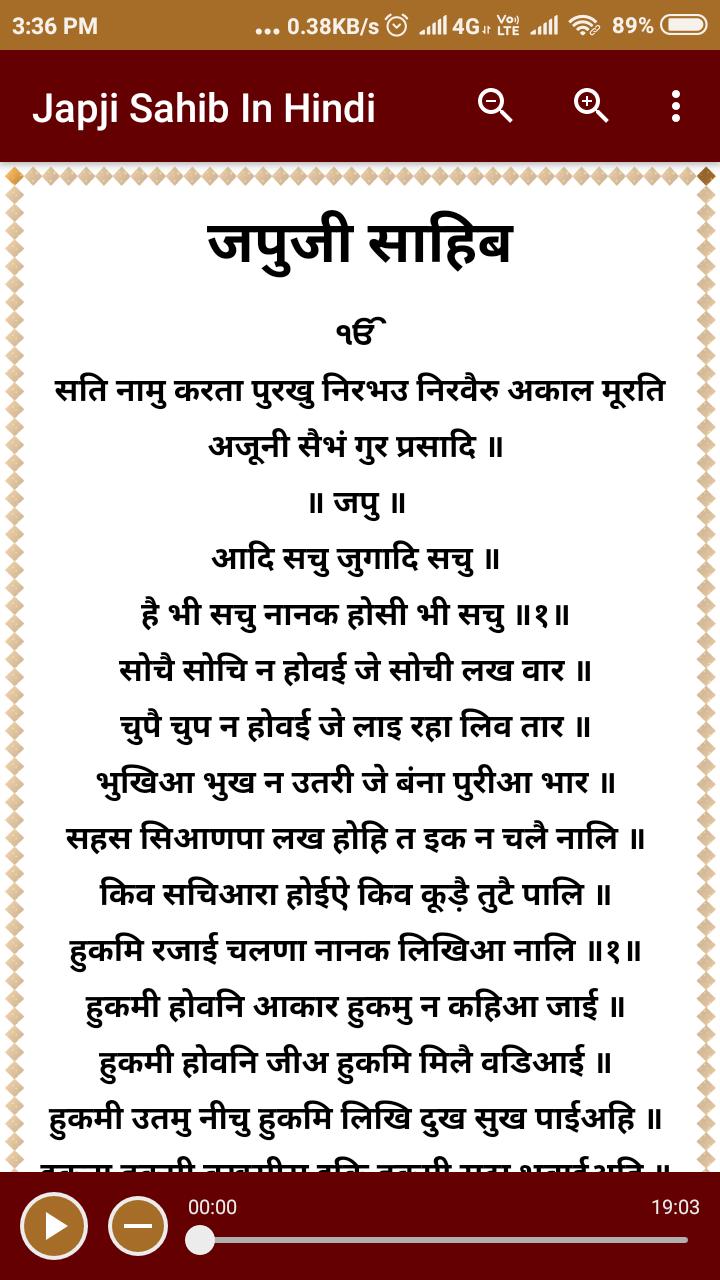 3:36 PM ... 0.38KB/s 4G VoLTE 89%
Japji Sahib In Hindi
जपुजी साहिब
ੴ
सति नामु करता पुरखु निरभउ निरवैरु अकाल मूरति
अजूनी सैभं गुर प्रसादि ॥
॥ जपु ॥
आदि सचु जुगादि सचु ॥
है भी सचु नानक होसी भी सचु ॥१॥
सोचै सोचि न होवई जे सोची लख वार ॥
चुपै चुप न होवई जे लाइ रहा लिव तार ॥
भुखिआ भुख न उतरी जे बंना पुरीआ भार ॥
सहस सिआणपा लख होहि त इक न चलै नालि ॥
किव सचिआरा होईऐ किव कूड़ै तुटै पालि ॥
हुकमि रजाई चलणा नानक लिखिआ नालि ॥१॥
हुकमी होवनि आकार हुकमु न कहिआ जाई ॥
हुकमी होवनि जीअ हुकमि मिलै वडिआई ॥
हुकमी उतमु नीचु हुकमि लिखि दुख सुख पाईअहि ॥
00:00 19:03